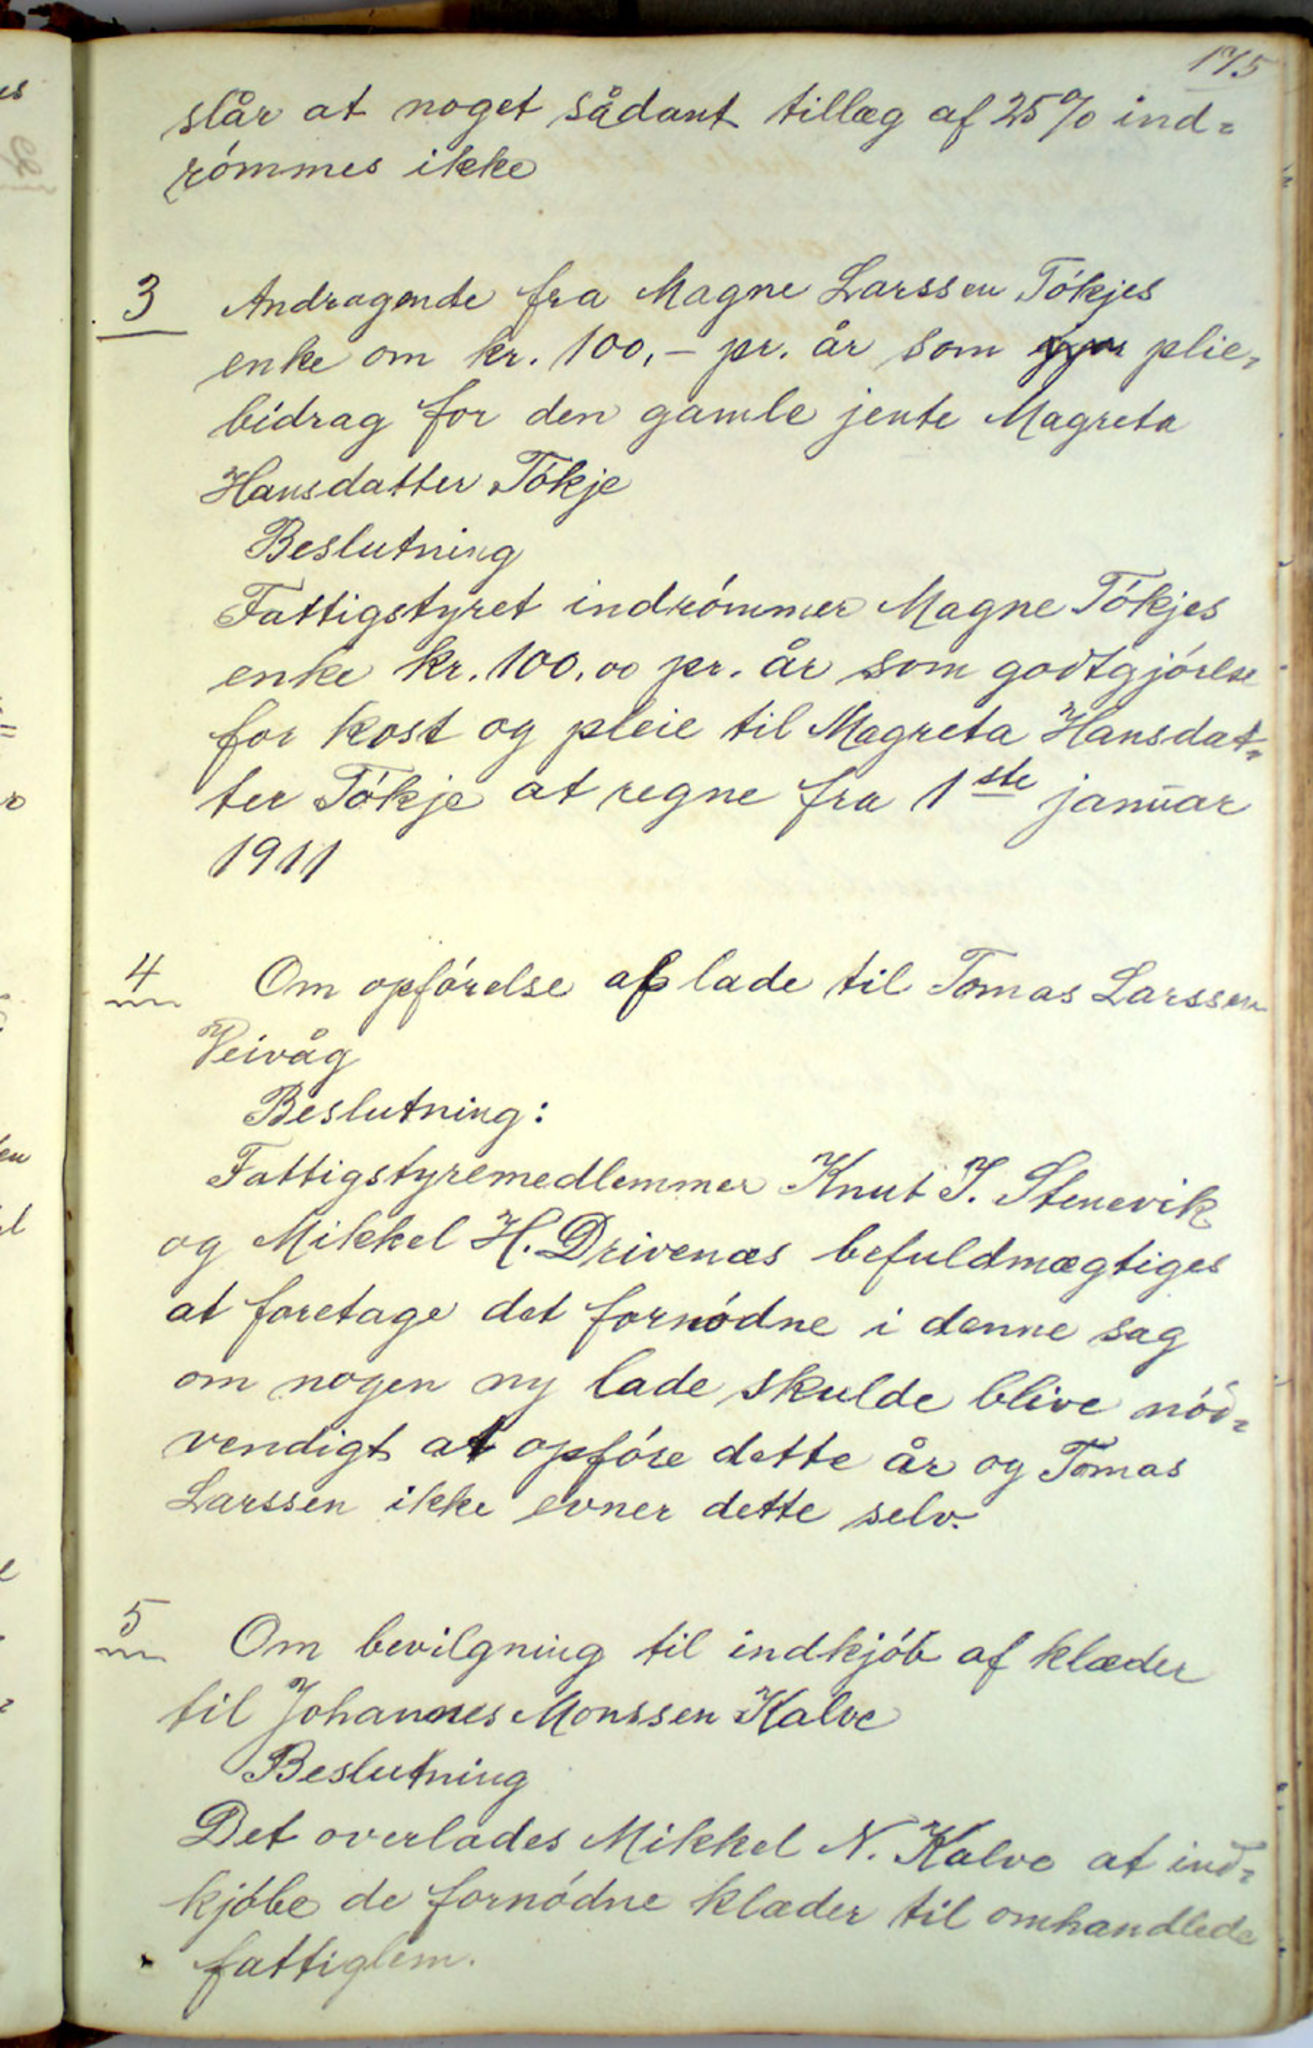 175
slår at noget sådant tillæg af 25% ind=
rómmes ikke
3 Andragende fra Magne Larssen Tókjes
enke om kr. 100,- pr. år som plie=
bidrag for den gamle jente Magreta
Hansdatter Tókje
Beslutning
Fattigstyret indrómmer Magne Tókjes
enke kr. 100,00 pr. år som godtgjórelse
for kost og pleie til Magreta Hansdat=
ter Tókje at regne fra 1ste januar
1911
4 Om opfórelse af lade til Tomas Larssen
Veivåg
Beslutning:
Fattigstyremedlemmer Knut J. Stenevik
og Mikkel H. Drivenæs befuldmægtiges
at foretage det fornódne i denne sag
om nogen ny lade skulde blive nód=
vendigt at opfóre dette år og Tomas
Larssen ikke evner dette selv.
5 Om bevilgning til indkjób af klæder
til Johannes Monssen Kalve
Beslutning
Det overlades Mikkel N. Kalve at ind=
kjóbe de fornódne klæder til omhandlede
fattiglem.